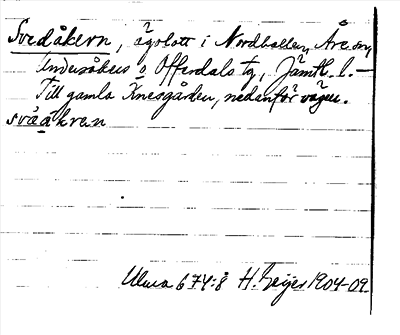 Svedåkern, ägolott i Nordhallen, Åre sn,
Undersåkers o Offerdals tg, Jämtl. l. —
Till gamla Knesgården, nedanför vägen.
svéa̲kren
Ulma 674:8 H. Geijer 1904-09.